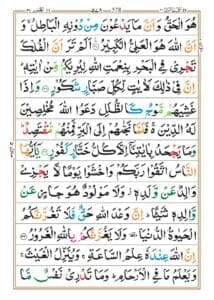 هُوَ الْحَقُّ وَ اَنَّ مَا يَدْعُوْنَ مِنْ دُوْنِهِ الْبَاطِلُ ۙ وَ
اَنَّ اللّٰهَ هُوَ الْعَلِيُّ الْكَبِيْرُ ۧ اَلَمْ تَرَ اَنَّ الْفُلْكَ
تَجْرِيْ فِي الْبَحْرِ بِنِعْمَتِ اللّٰهِ لِيُرِيَكُمْ مِّنْ اٰيٰتِهٖ ؕ
اِنَّ فِيْ ذٰلِكَ لَاٰيٰتٍ لِّكُلِّ صَبَّارٍ شَكُوْرٍ ۝ وَ اِذَا
غَشِيَهُمْ مَّوْجٌ كَالظُّلَلِ دَعَوُا اللّٰهَ مُخْلِصِيْنَ
لَهُ الدِّيْنَ ۚ فَلَمَّا نَجّٰىهُمْ اِلَى الْبَرِّ فَمِنْهُمْ مُّقْتَصِدٌ ؕ
وَ مَا يَجْحَدُ بِاٰيٰتِنَاۤ اِلَّا كُلُّ خَتَّارٍ كَفُوْرٍ ۝ يٰۤاَيُّهَا
النَّاسُ اتَّقُوْا رَبَّكُمْ وَ اخْشَوْا يَوْمًا لَّا يَجْزِيْ
وَالِدٌ عَنْ وَّلَدِهٖ ؗ وَ لَا مَوْلُوْدٌ هُوَ جَازٍ عَنْ
وَّالِدِهٖ شَيْـًٔا ؕ اِنَّ وَعْدَ اللّٰهِ حَقٌّ فَلَا تَغُرَّنَّكُمُ
الْحَيٰوةُ الدُّنْيَا ۥ وَ لَا يَغُرَّنَّكُمْ بِاللّٰهِ الْغَرُوْرُ ۝
اِنَّ اللّٰهَ عِنْدَهٗ عِلْمُ السَّاعَةِ ۚ وَ يُنَزِّلُ الْغَيْثَ ۚ
وَ يَعْلَمُ مَا فِي الْاَرْحَامِ ؕ وَ مَا تَدْرِيْ نَفْسٌ مَّا